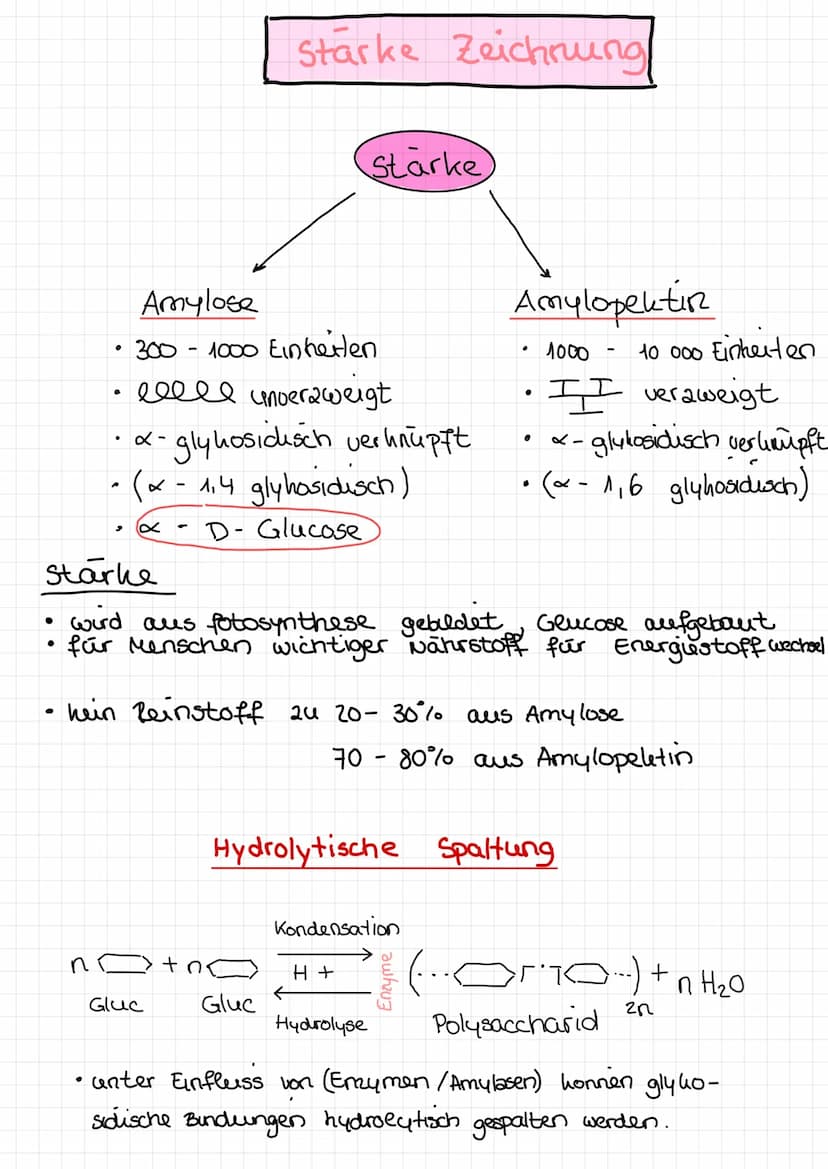 Stärke Zeichnung
Stärke
Amylose
• 300 - 1000 Einheiten
• unverzweigt
• α- glykosidisch verknüpft
• (α - 1,4 glykosidisch)
• α - D- Glucose
Amylopektin
• 1000 - 10 000 Einheiten
• verzweigt
• α- glykosidisch verknüpft
• (α - 1,6 glykosidisch)
Stärke
• wird aus fotosynthese gebildet, Glucose aufgebaut
• für Menschen wichtiger Nährstoff für Energiestoffwechsel
• kein Reinstoff zu 20- 30% aus Amylose
70 - 80% aus Amylopektin
Hydrolytische Spaltung
Kondensation
n + n H + Enzyme (... ...) + n H2O
Gluc Gluc Hydrolyse Polysaccharid 2n
• unter Einfluss von (Enzymen /Amylasen) können glyko-
sidische Bindungen hydrolytisch gespalten werden.